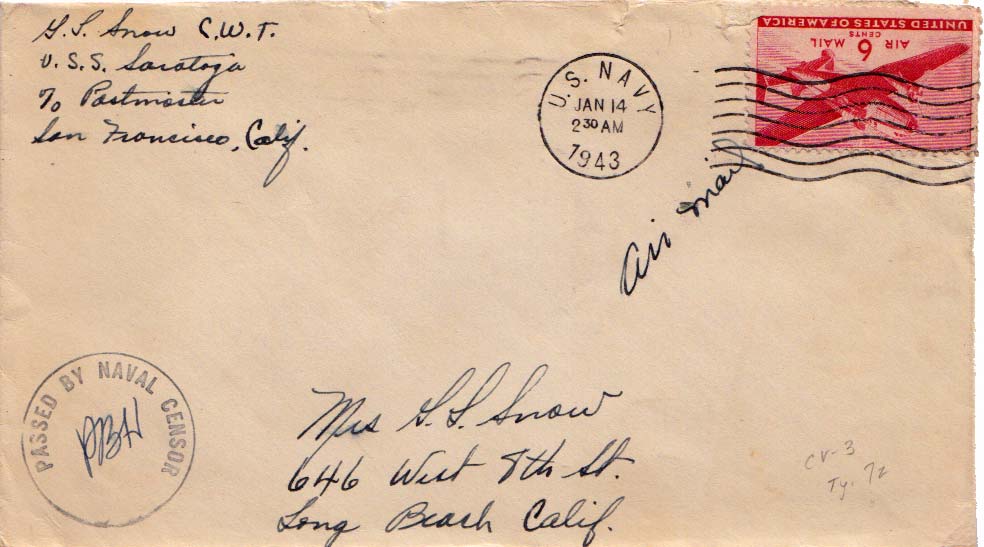 G. S. Snow C.W.T.
U.S.S. Saratoga
℅ Postmaster
San Francisco, Calif.
U.S. NAVY
JAN 14
2 30 AM
1943
UNITED STATES OF AMERICA
AIR 6 MAIL
CENTS
Air mail
PASSED BY NAVAL CENSOR
Mrs G. S. Snow
646 West 8th St.
Long Beach Calif.
CV-3
Ty. 7z